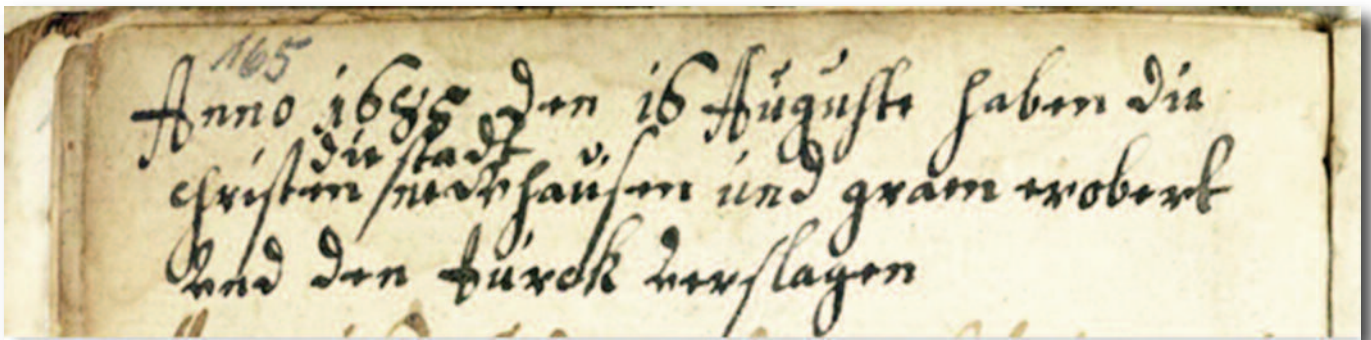 165
Anno 1685 den 16 Auguste haben die
die stadt
christen und gram erobert
Vnd den türck verslagen